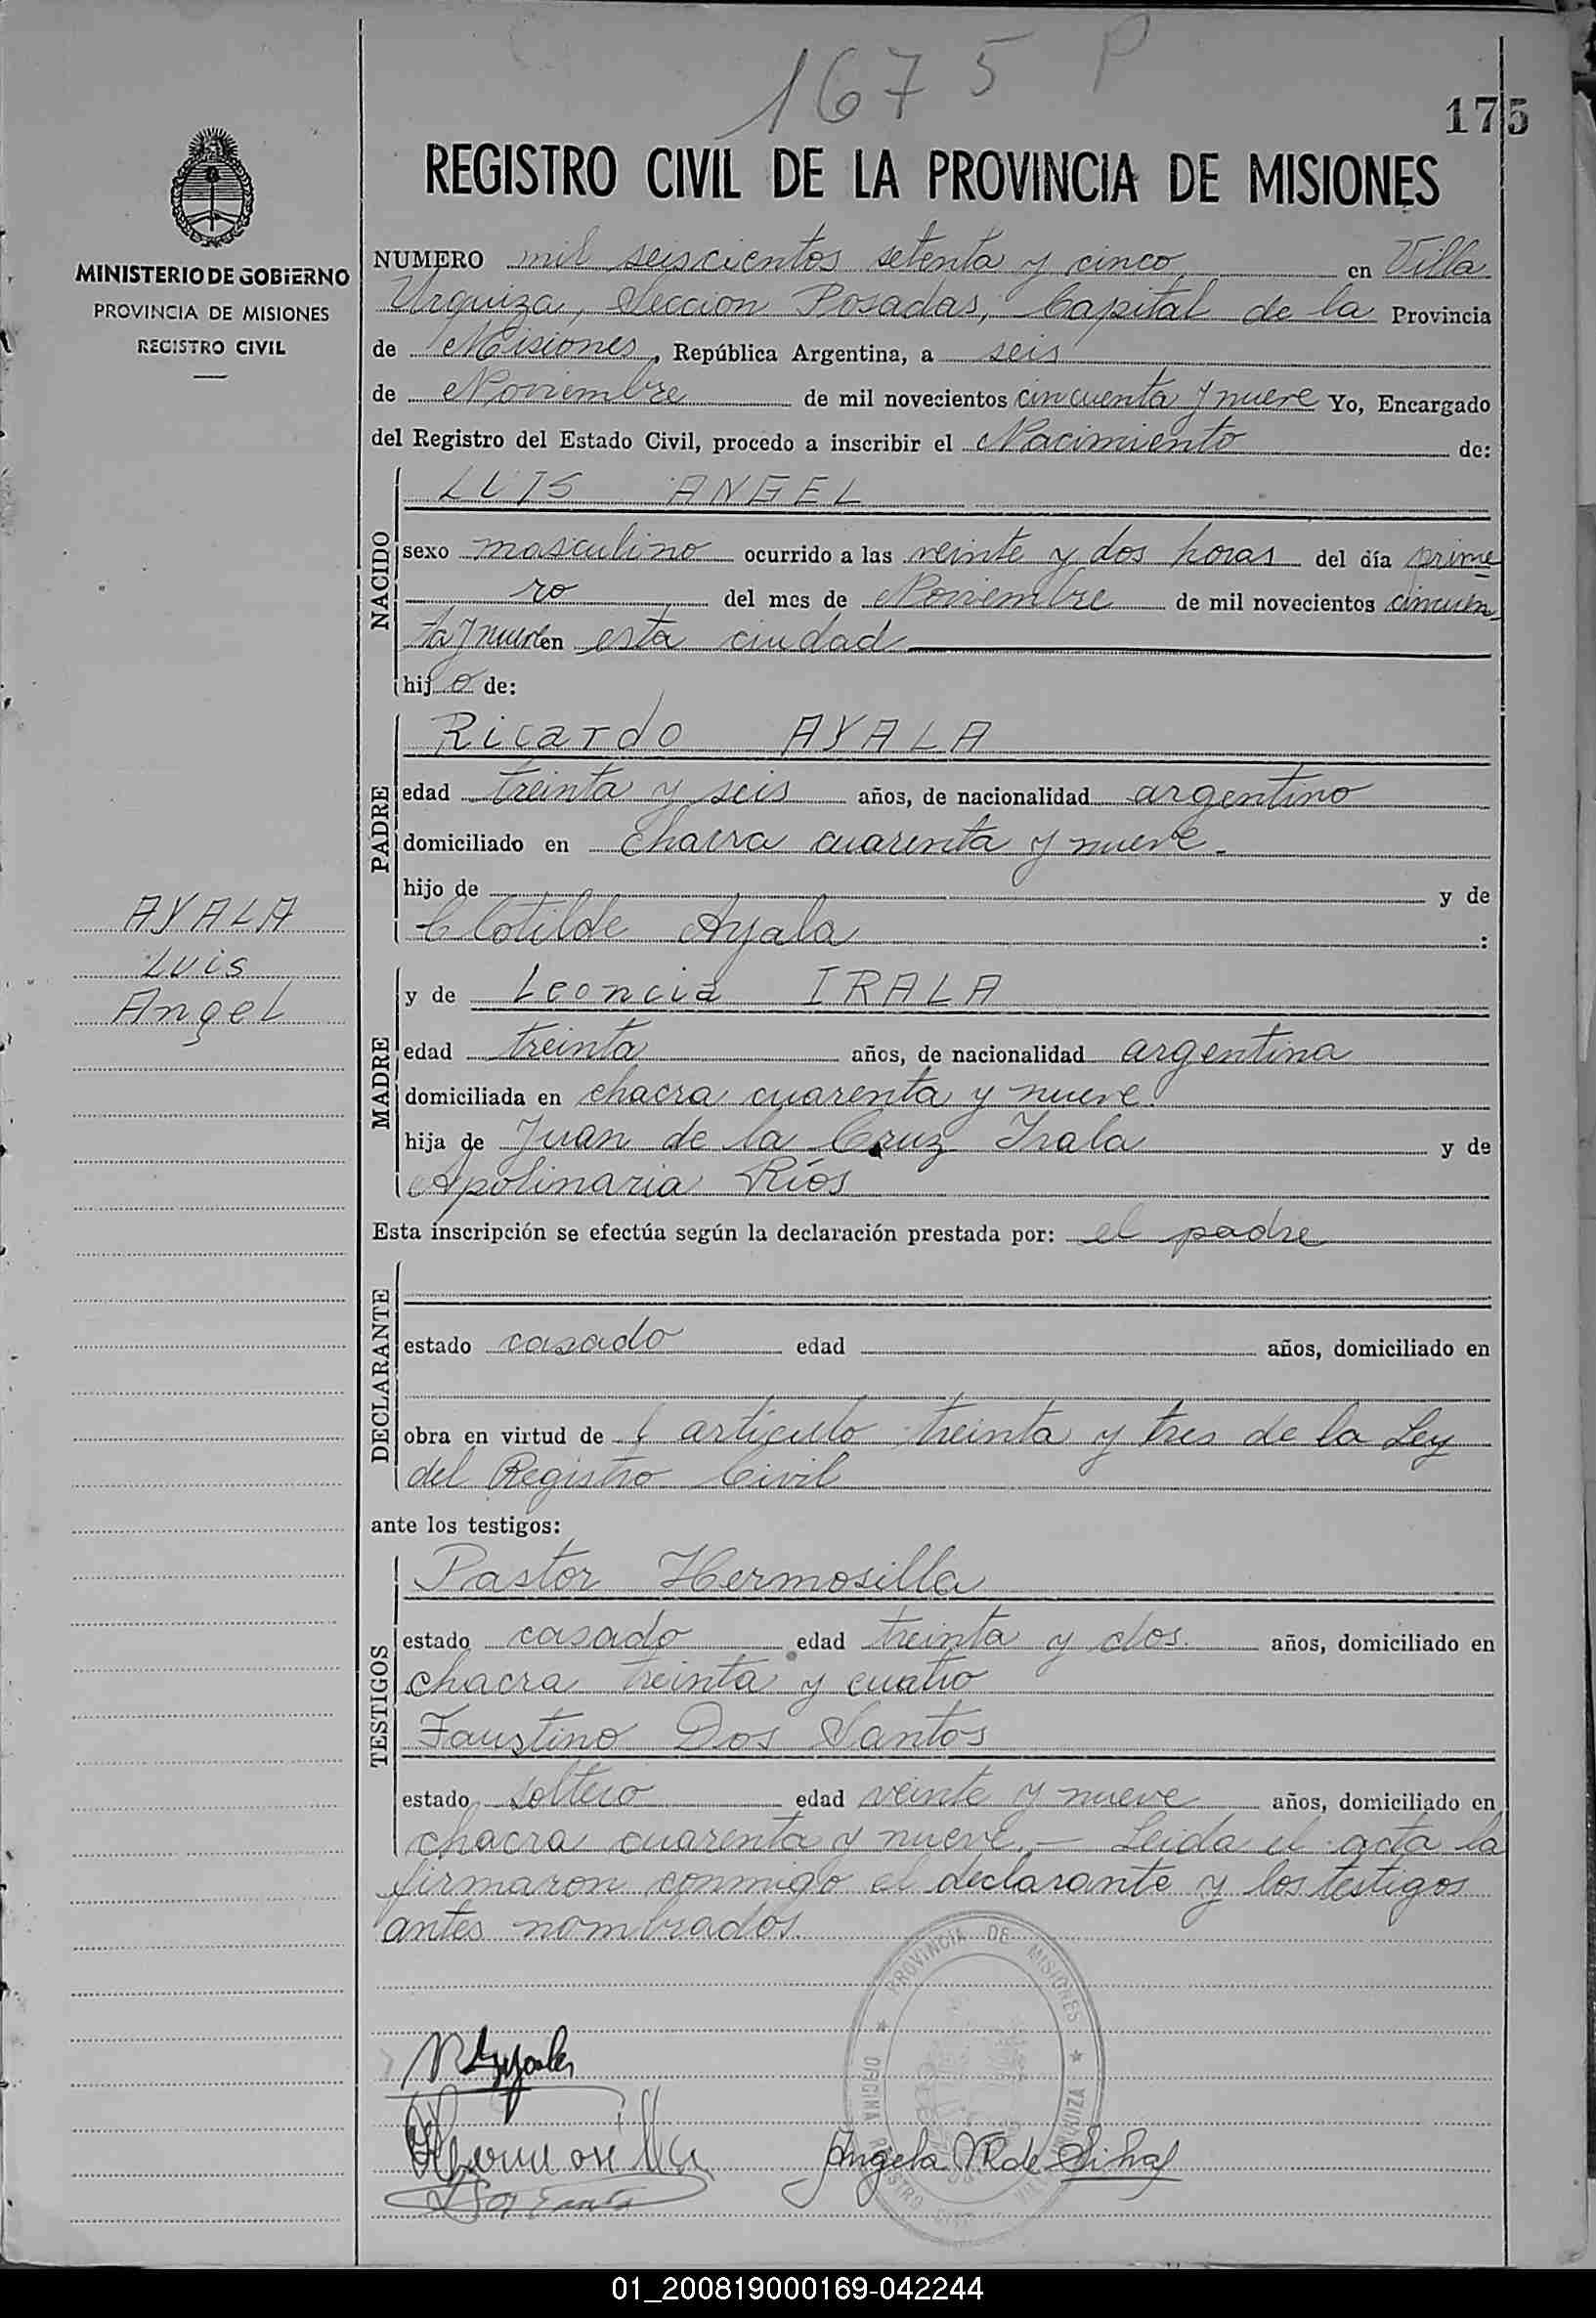 1675 P
175
MINISTERIO DE GOBIERNO
PROVINCIA DE MISIONES
REGISTRO CIVIL
AYALA
Luis
Angel
REGISTRO CIVIL DE LA PROVINCIA DE MISIONES
NUMERO mil seiscientos setenta y cinco, en Villa
Urquiza, Seccion Posadas, Capital de la Provincia
de Misiones, República Argentina, a seis
de Noviembre de mil novecientos cincuenta y nueve Yo, Encargado
del Registro del Estado Civil, procedo a inscribir el Nacimiento de:
NACIDO
LUIS ANGEL
sexo masculino ocurrido a las veinte y dos horas del día prime
ro del mes de Noviembre de mil novecientos cincuen
ta y nueve en esta ciudad
hijo de:
PADRE
Ricardo AYALA
edad treinta y seis años, de nacionalidad argentino
domiciliado en Chacra cuarenta y nueve.
hijo de y de
Clotilde Ayala :
MADRE
y de Leoncia IRALA
edad treinta años, de nacionalidad argentina
domiciliada en chacra cuarenta y nueve.
hija de Juan de la Cruz Irala y de
Apolinaria Ríos
Esta inscripción se efectúa según la declaración prestada por: el padre
DECLARANTE
estado casado edad años, domiciliado en
obra en virtud de l articulo treinta y tres de la Ley
del Registro Civil
ante los testigos:
TESTIGOS
Pastor Hermosilla
estado casado edad treinta y dos. años, domiciliado en
chacra treinta y cuatro
Faustino Dos Santos
estado soltero edad veinte y nueve años, domiciliado en
chacra cuarenta y nueve.- Leida el acta la
firmaron conmigo el declarante y los testigos
antes nombrados.
PROVINCIA DE MISIONES
OFICINA REGISTRO CIVIL
URQUIZA
R Ayala
Hermosilla
Dos Santos
Angela de Silva
01_200819000169-042244